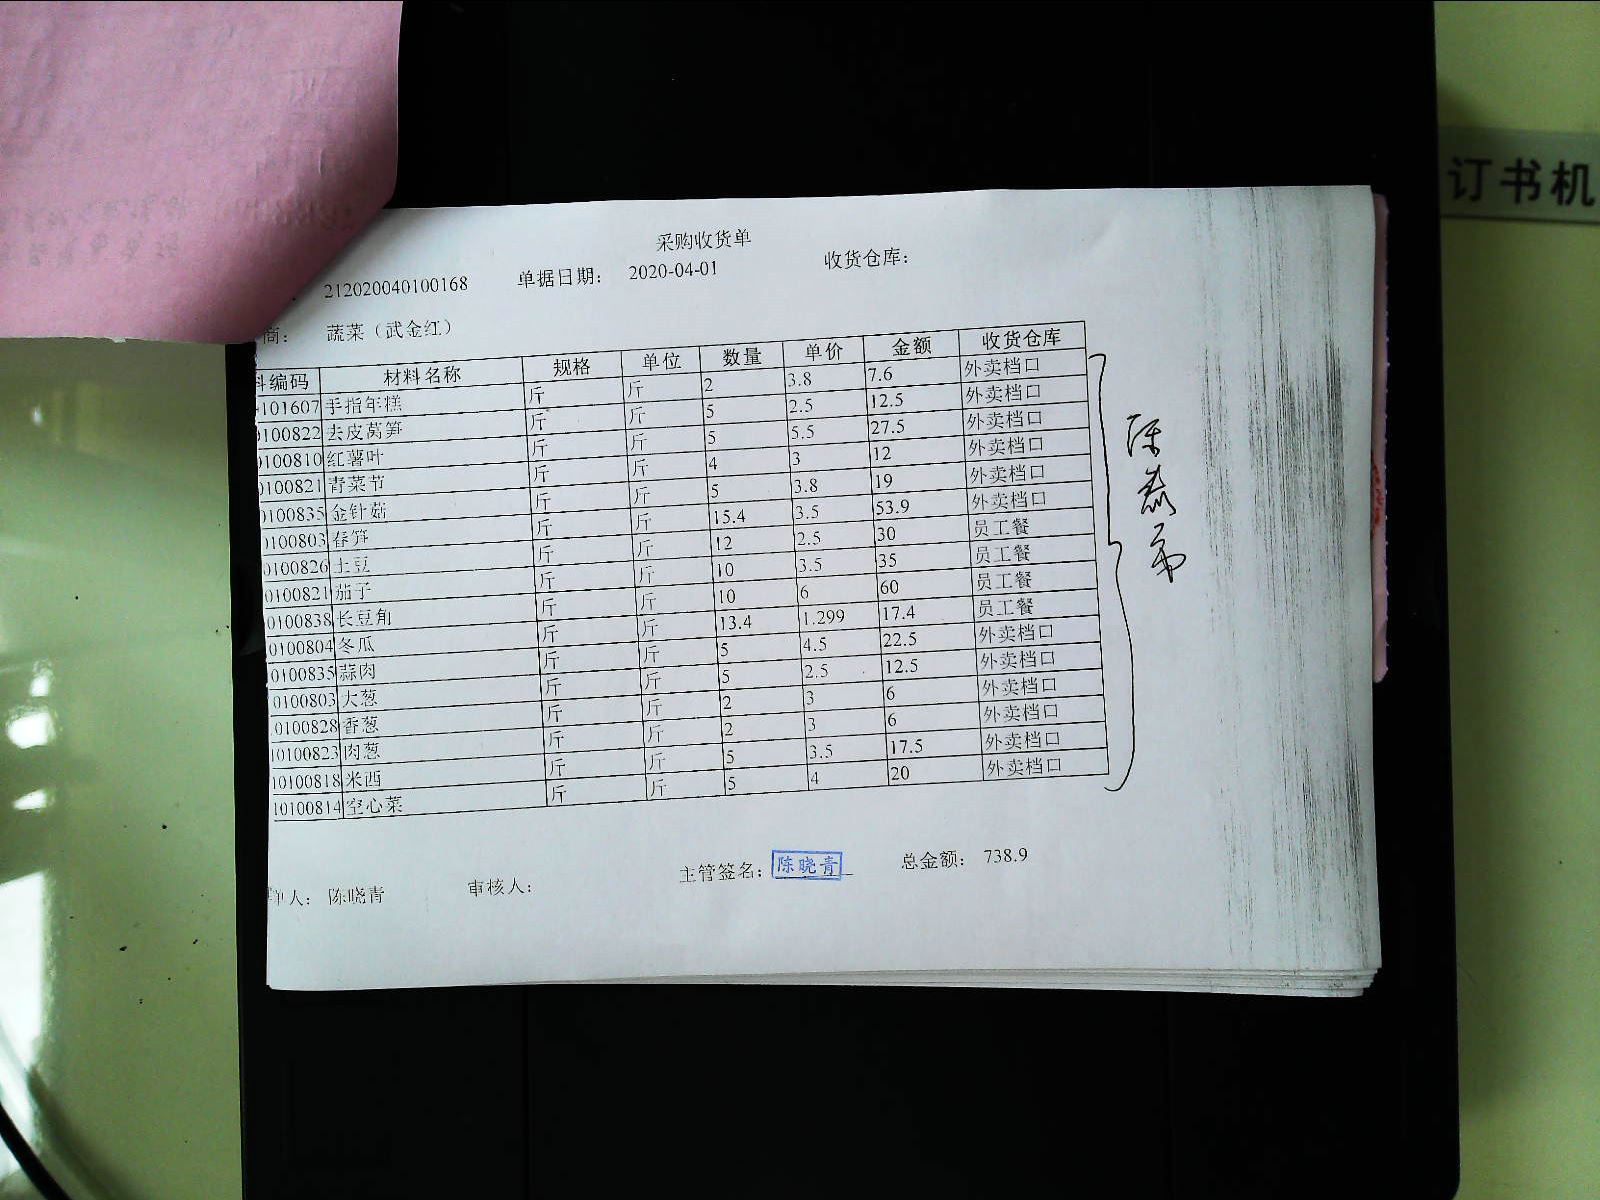 采购收货单
212020040100168 单据日期： 2020-04-01 收货仓库：
商： 蔬菜（武金红）
料编码 材料名称 规格 单位 数量 单价 金额 收货仓库
101607 手指年糕 斤 斤 2 3.8 7.6 外卖档口
0100822 去皮莴笋 斤 斤 5 2.5 12.5 外卖档口
0100810 红薯叶 斤 斤 5 5.5 27.5 外卖档口
0100821 青菜节 斤 斤 4 3 12 外卖档口
0100835 金针菇 斤 斤 5 3.8 19 外卖档口
0100803 春笋 斤 斤 15.4 3.5 53.9 外卖档口
0100826 土豆 斤 斤 12 2.5 30 员工餐
0100821 茄子 斤 斤 10 3.5 35 员工餐
0100838 长豆角 斤 斤 10 6 60 员工餐
0100804 冬瓜 斤 斤 13.4 1.299 17.4 员工餐
0100835 蒜肉 斤 斤 5 4.5 22.5 外卖档口
0100803 大葱 斤 斤 5 2.5 12.5 外卖档口
10100828 香葱 斤 斤 2 3 6 外卖档口
10100823 肉葱 斤 斤 2 3 6 外卖档口
10100818 米西 斤 斤 5 3.5 17.5 外卖档口
10100814 空心菜 斤 斤 5 4 20 外卖档口
单人： 陈晓青 审核人： 主管签名： 陈晓青 总金额： 738.9
订书机